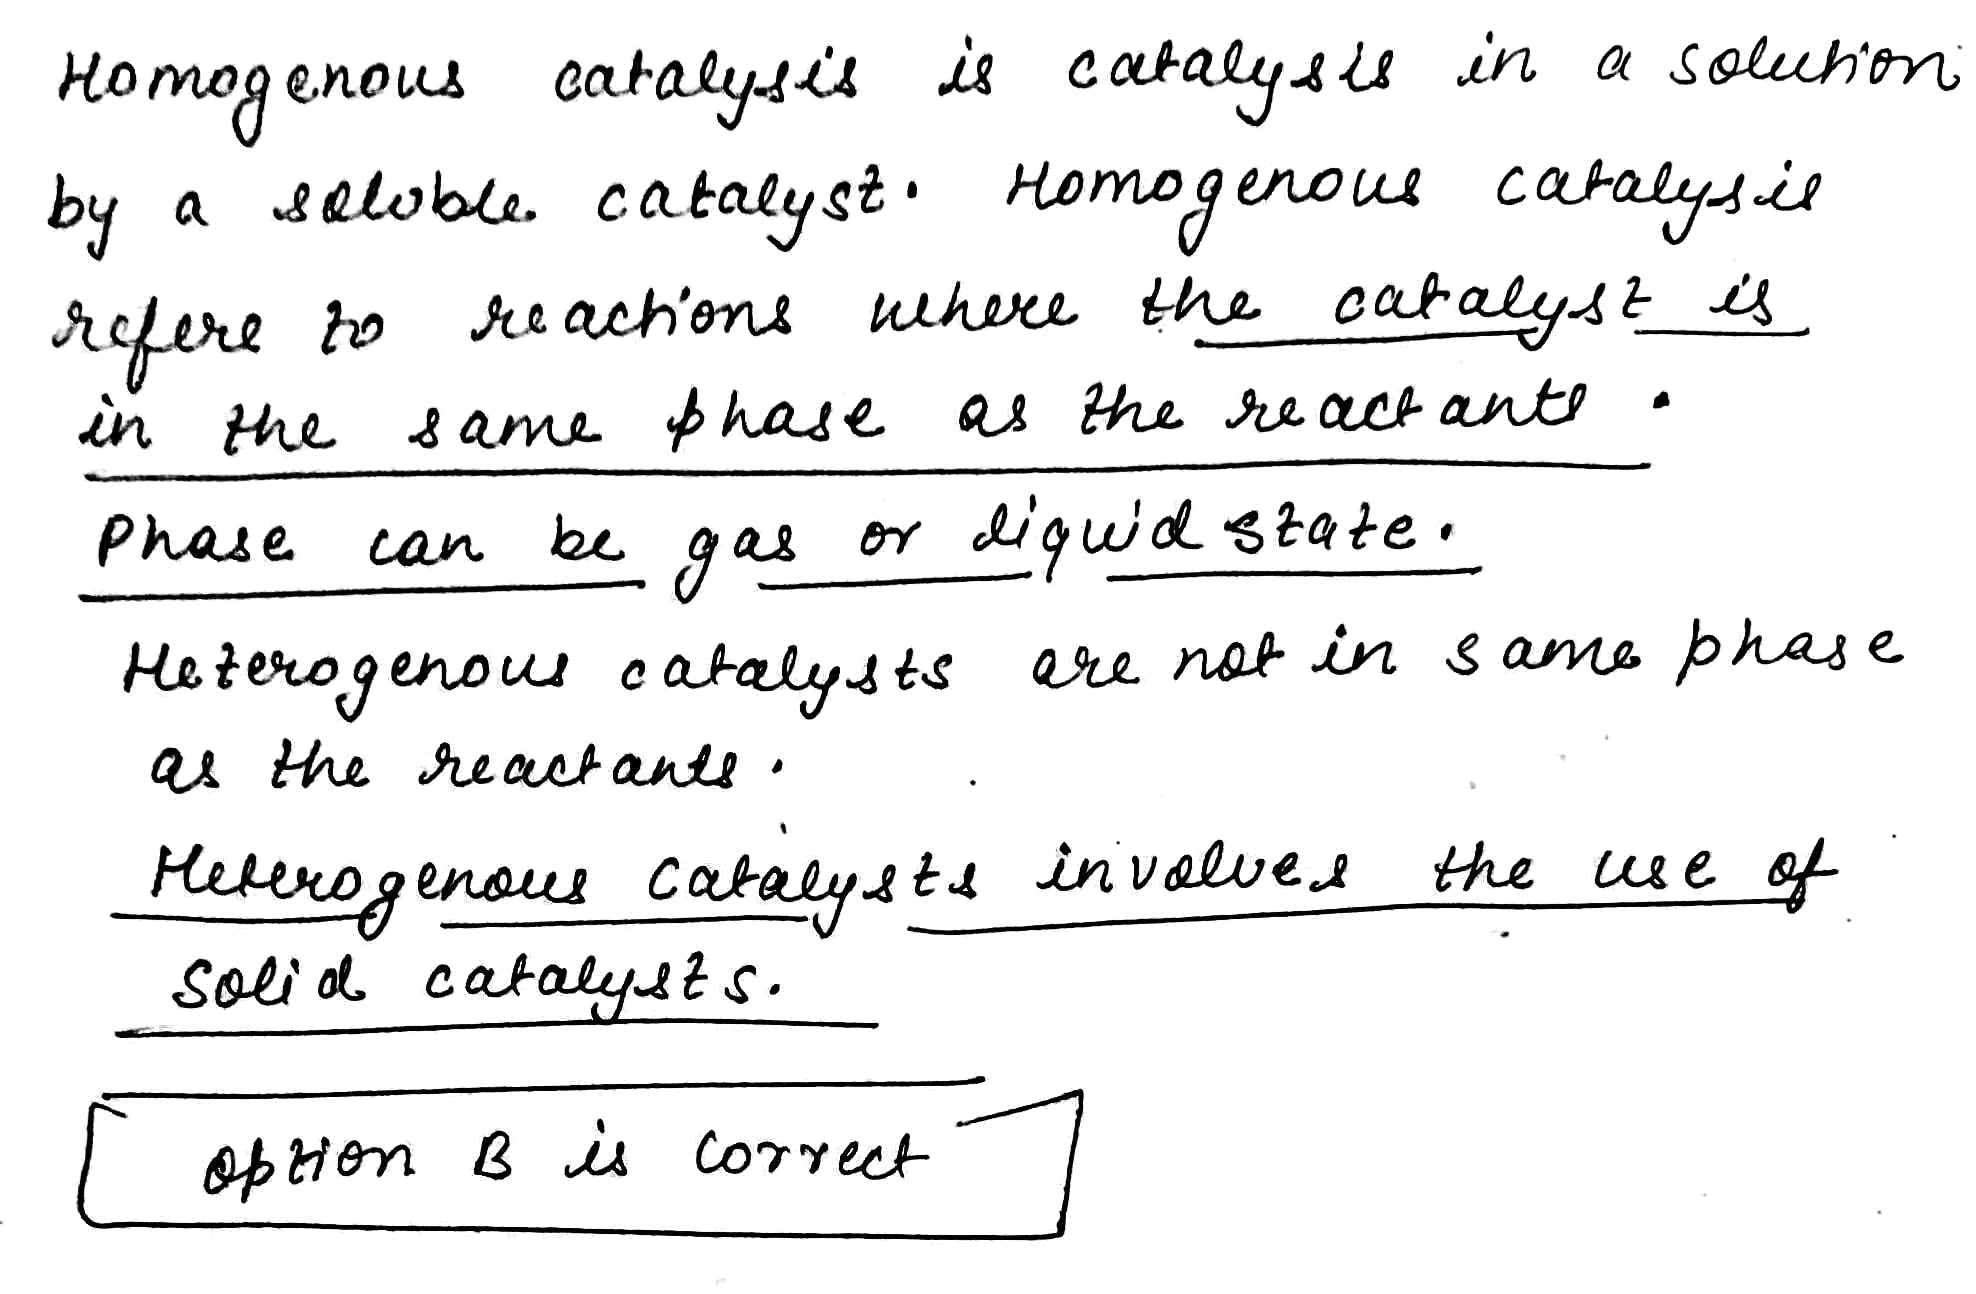 Homogenous catalysis is catalysis in a solution
by a soluble catalyst. Homogenous catalysis
refers to reactions where the catalyst is
in the same phase as the reactants.
Phase can be gas or liquid state.
Heterogenous catalysts are not in same phase
as the reactants.
Heterogenous catalysts involves the use of
solid catalysts.
option B is correct